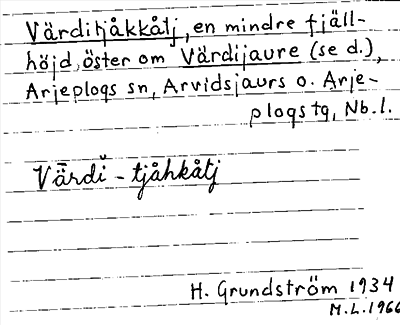 Värditjåkkåtj, en mindre fjäll-
höjd öster om Värdijaure (se d.),
Arjeplogs sn, Arvidsjaurs o. Arje-
plogs tg, Nb. l.
Värdĭ - tjåhkåtj
H. Grundström 1934
M.L. 1966